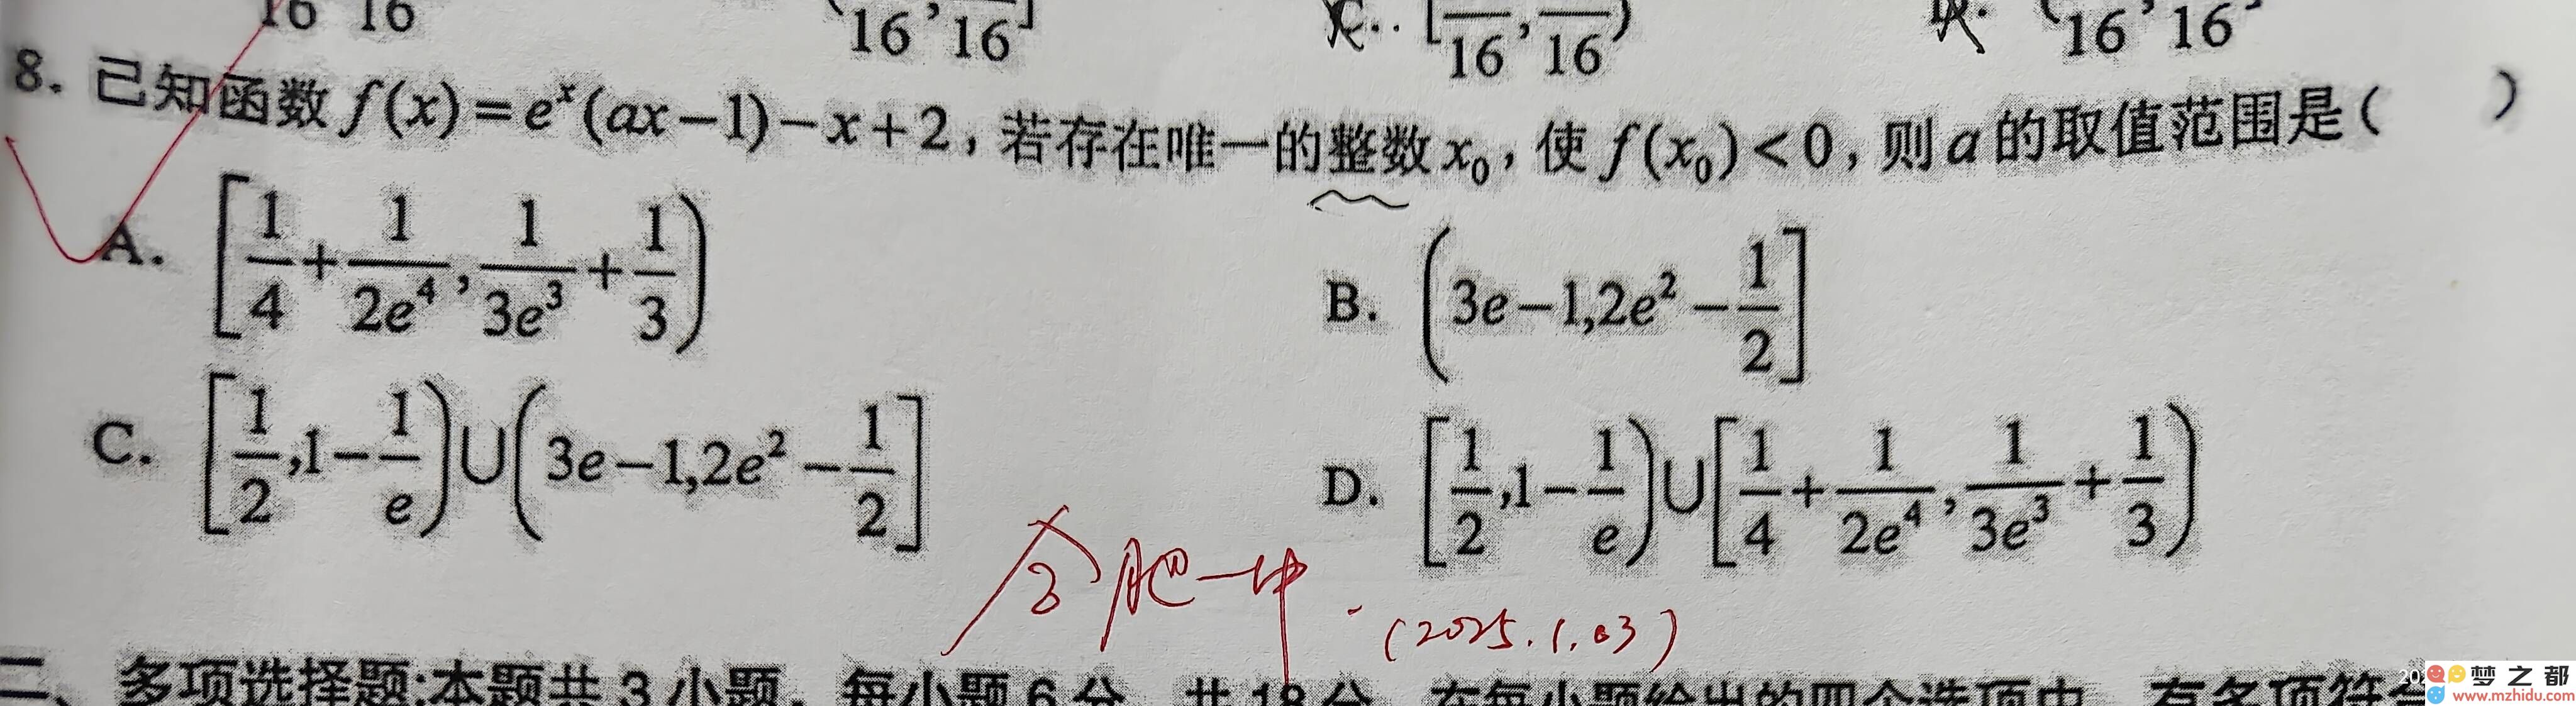 16 16 16 , 16 ] C.. [ 16 , 16 ) ( 16 , 16
8. 已知函数 f(x)=eˣ(ax−1)−x+2，若存在唯一的整数 x₀，使 f(x₀)<0，则 a 的取值范围是（ ）
A. [1/4+1/(2e⁴), 1/(3e³)+1/3)
B. (3e−1,2e²−1/2]
C. [1/2,1−1/e)∪(3e−1,2e²−1/2]
D. [1/2,1−1/e)∪[1/4+1/(2e⁴), 1/(3e³)+1/3)
合肥一中.
(2025.1.03)
二、多项选择题:本题共 3 小题，每小题 6 分，共 18 分，在每小题给出的四个选项中，有多项符合
梦之都
www.mzhidu.com